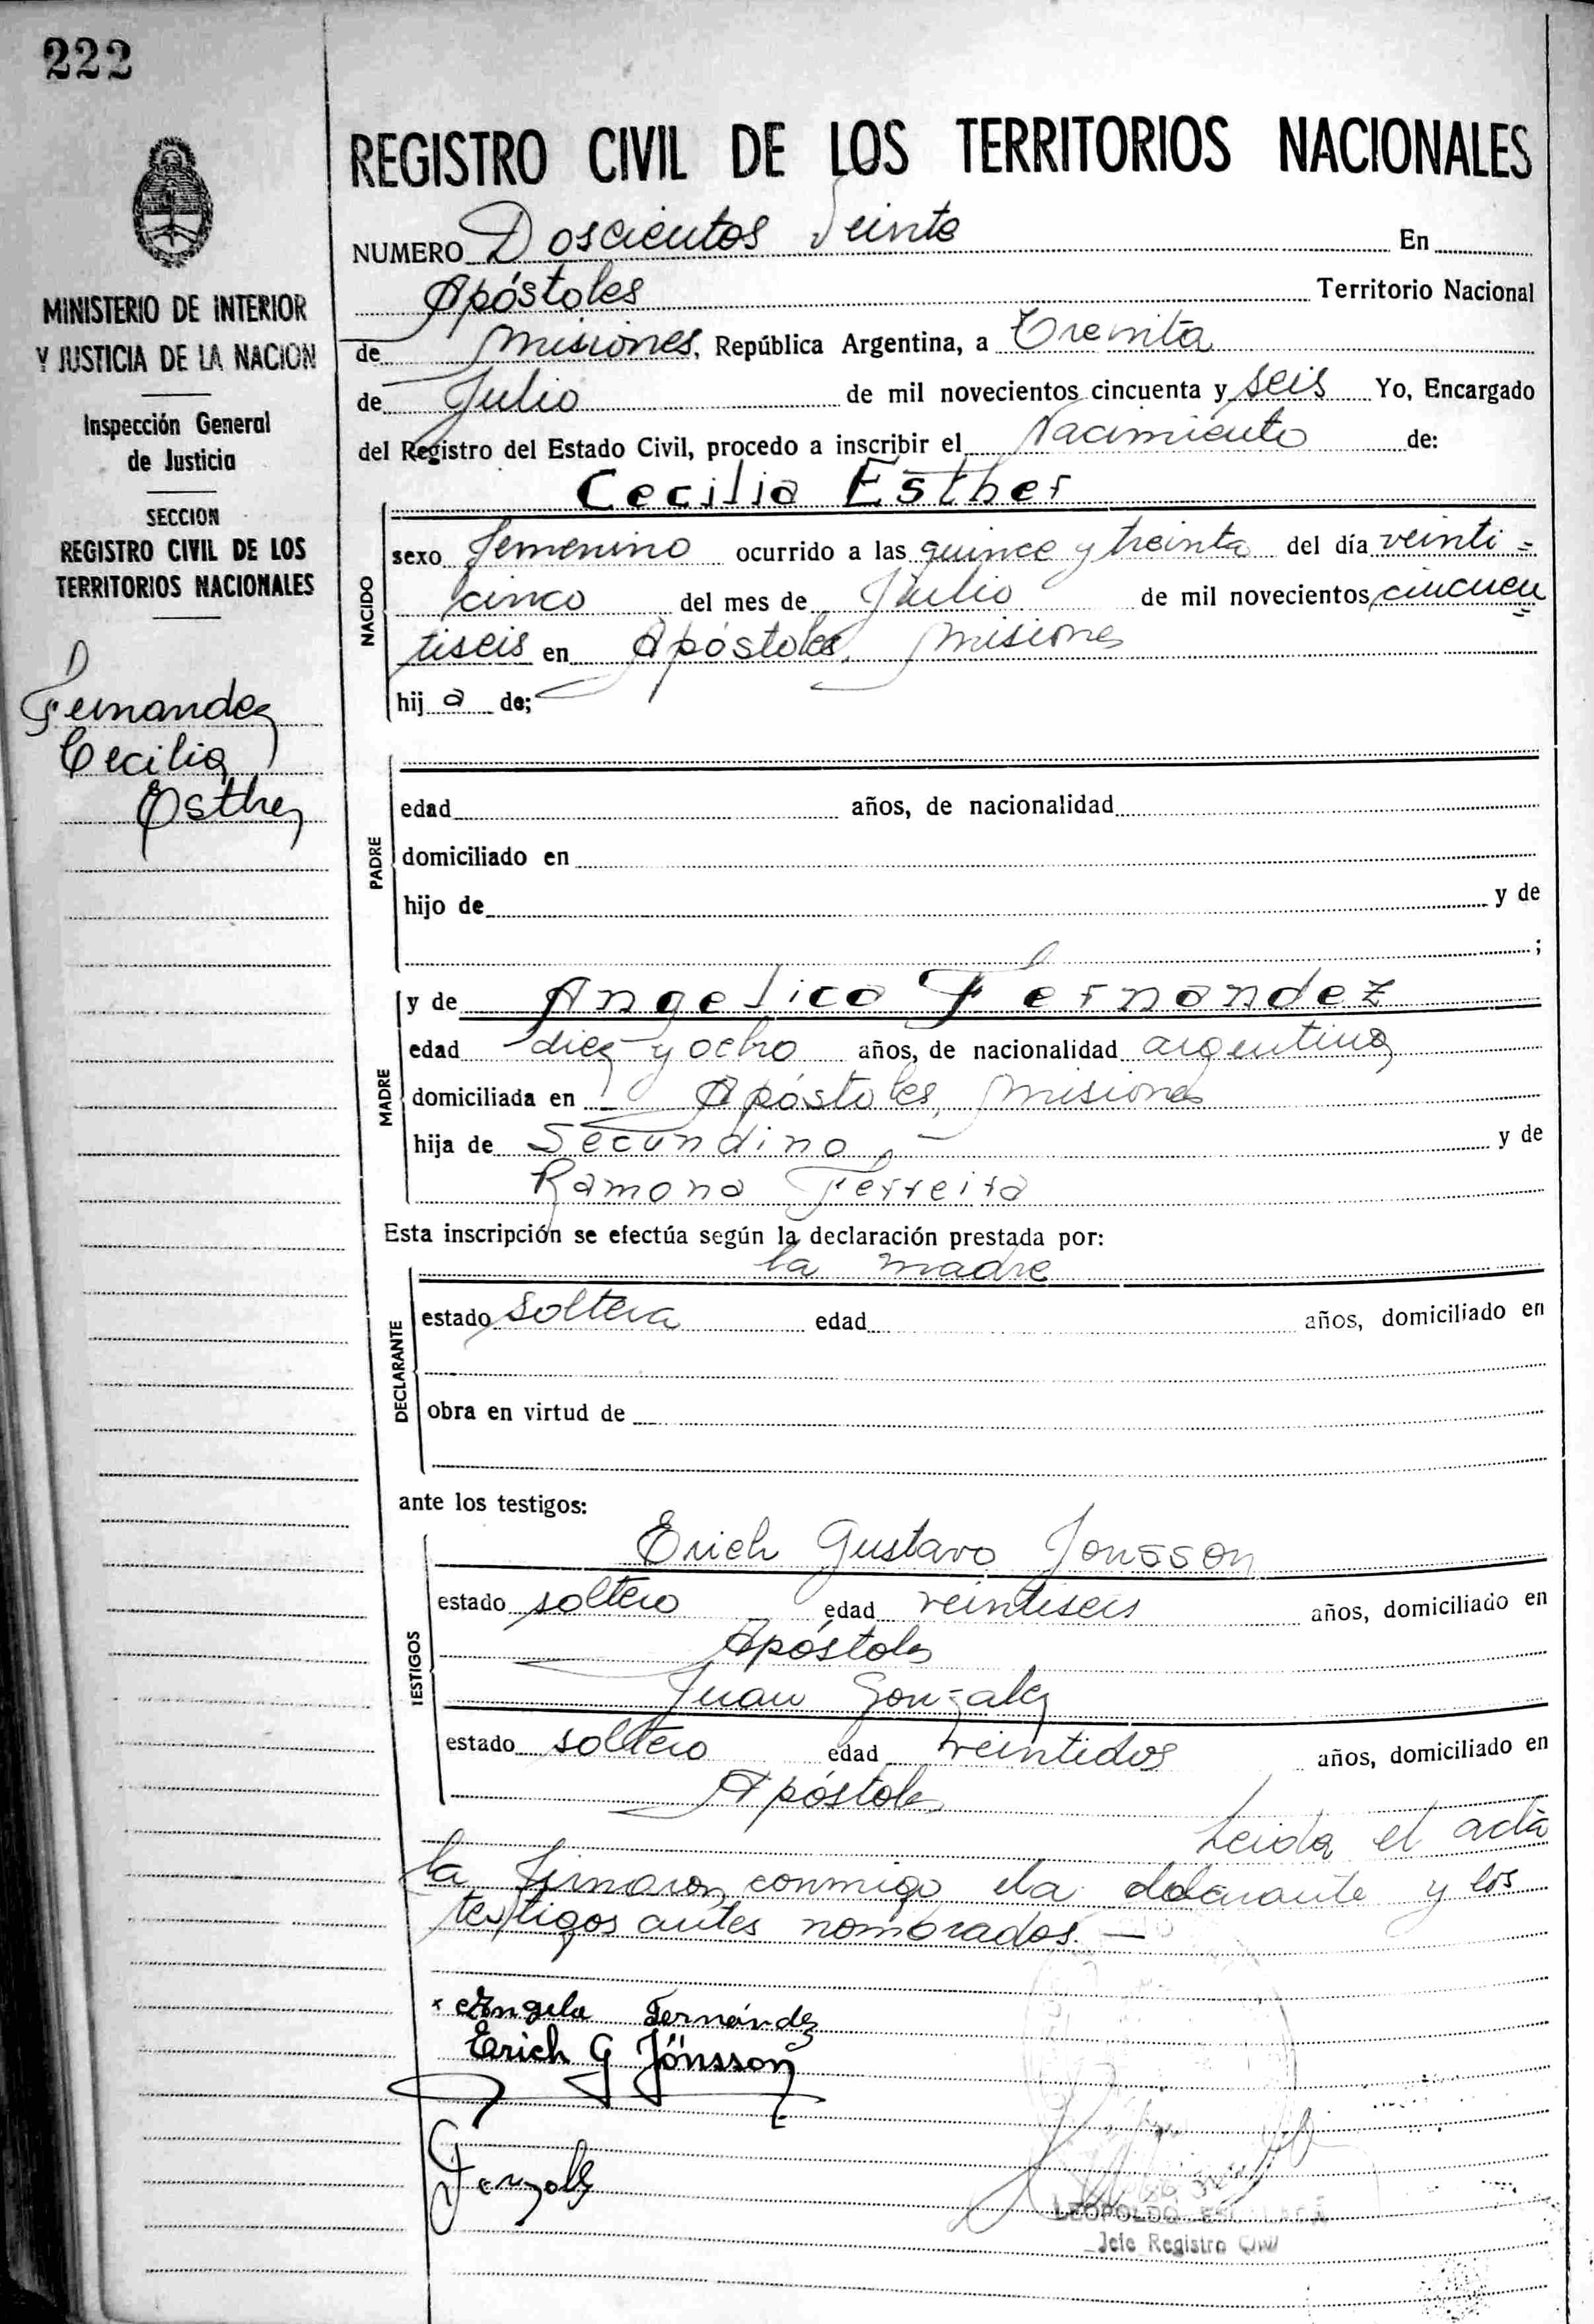 222
MINISTERIO DE INTERIOR
Y JUSTICIA DE LA NACION
Inspección General
de Justicia
SECCION
REGISTRO CIVIL DE LOS
TERRITORIOS NACIONALES
Fernandez
Cecilia
Esther
REGISTRO CIVIL DE LOS TERRITORIOS NACIONALES
NUMERO Doscientos Veinte En
Apóstoles Territorio Nacional
de Misiones, República Argentina, a Treinta
de Julio de mil novecientos cincuenta y seis Yo, Encargado
del Registro del Estado Civil, procedo a inscribir el Nacimiento de:
Cecilia Esther
NACIDO
sexo femenino ocurrido a las quince y treinta del día veinti=
cinco del mes de Julio de mil novecientos cincuen=
tiseis en Apóstoles, Misiones
hij a de;
PADRE
edad años, de nacionalidad
domiciliado en
hijo de y de
;
MADRE
y de Angelica Fernandez
edad diez y ocho años, de nacionalidad argentina
domiciliada en Apóstoles, Misiones
hija de Secundino y de
Ramona Ferreira
Esta inscripción se efectúa según la declaración prestada por:
la madre
DECLARANTE
estado soltera edad años, domiciliado en
obra en virtud de
ante los testigos:
TESTIGOS
Erich Gustavo Jonsson
estado soltero edad veintiseis años, domiciliado en
Apóstoles
Juan Gonzalez
estado soltero edad veintidos años, domiciliado en
Apóstoles
Leida el acta
la firmaron conmigo la declarante y los
testigos antes nombrados. —
x Angela Fernández
Erich G Jönsson
Gonzalez
LEOPOLDO
Jefe Registro Civil